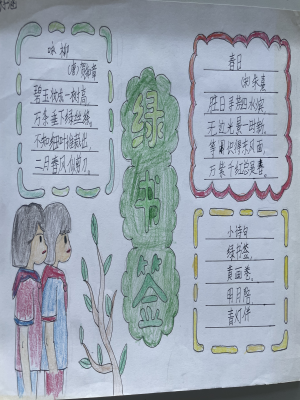 咏柳
(唐)贺知章
碧玉妆成一树高,
万条垂下绿丝绦。
不知细叶谁裁出,
二月春风似剪刀。
绿书签
春日
(宋)朱熹
胜日寻芳泗水滨
无边光景一时新,
等闲识得东风面,
万紫千红总是春。
小诗句
绿书签,
青画卷,
明月陪,
青灯伴